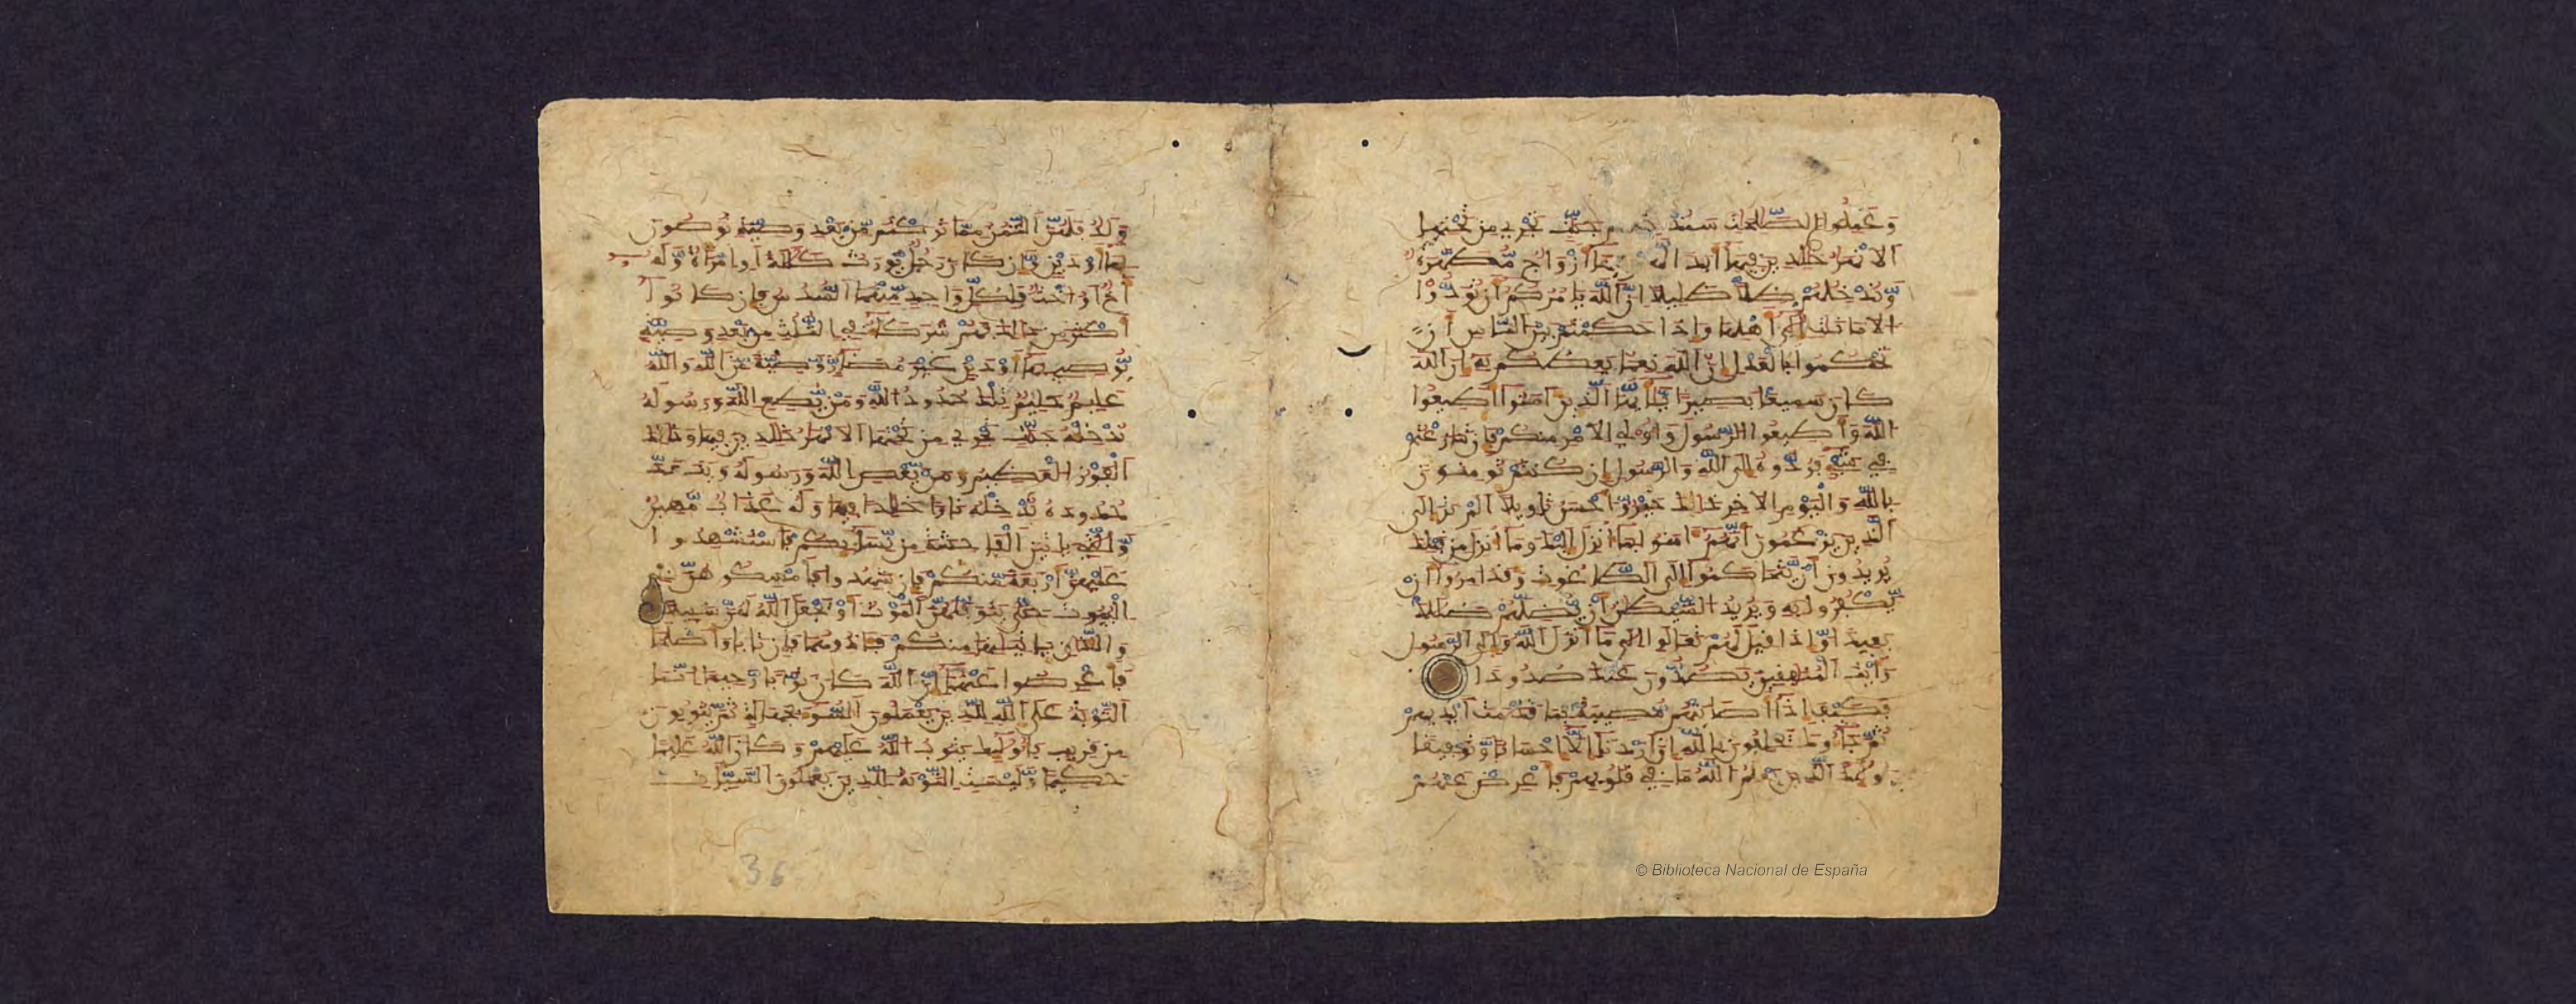 وعملوا الصلحت سندخلهم جنت تجري من تحتها
الانهر خلدين فيها ابدا لهم فيها ازواج مطهرة
وندخلهم ظلا ظليلا ان الله يامركم ان تودوا
الامانات الى اهلها واذا حكمتم بين الناس ان
تحكموا بالعدل ان الله نعما يعظكم به ان الله
كان سميعا بصيرا يايها الذين امنوا اطيعوا
الله واطيعوا الرسول واولي الامر منكم فان تنزعتم
في شيء فردوه الى الله والرسول ان كنتم تومنون
بالله واليوم الاخر ذلك خير واحسن تاويلا الم تر الى
الذين يزعمون انهم امنوا بما انزل اليك وما انزل من قبلك
يريدون ان يتحاكموا الى الطاغوت وقد امروا ان
يكفروا به ويريد الشيطن ان يضلهم ضللا
بعيدا واذا قيل لهم تعالوا الى ما انزل الله والى الرسول
رايت المنفقين يصدون عنك صدودا
فكيف اذا اصابتهم مصيبة بما قدمت ايديهم
ثم جاءوك يحلفون بالله ان اردنا الا احسانا وتوفيقا
اولئك الذين يعلم الله ما في قلوبهم فاعرض عنهم
ولد فلهن الثمن مما تركتم من بعد وصية توصون
بها او دين وان كان رجل يورث كللة او امراة وله
اخ او اخت فلكل واحد منهما السدس فان كانوا
اكثر من ذلك فهم شركاء في الثلث من بعد وصية
يوصي بها او دين غير مضار وصية من الله والله
عليم حليم تلك حدود الله ومن يطع الله ورسوله
ندخله جنت تجري من تحتها الانهر خلدين فيها وذلك
الفوز العظيم ومن يعص الله ورسوله ويتعد
حدوده ندخله نارا خلدا فيها وله عذاب مهين
والتي ياتين الفاحشة من نسائكم فاستشهدوا
عليهن اربعة منكم فان شهدوا فامسكوهن في
البيوت حتى يتوفيهن الموت او يجعل الله لهن سبيلا
والذان ياتينها منكم فاذوهما فان تابا واصلحا
فاعرضوا عنهما ان الله كان توابا رحيما انما
التوبة على الله للذين يعملون السوء بجهلة ثم يتوبون
من قريب فاولئك يتوب الله عليهم وكان الله عليما
حكيما وليست التوبة للذين يعملون السيات
36
© Biblioteca Nacional de España